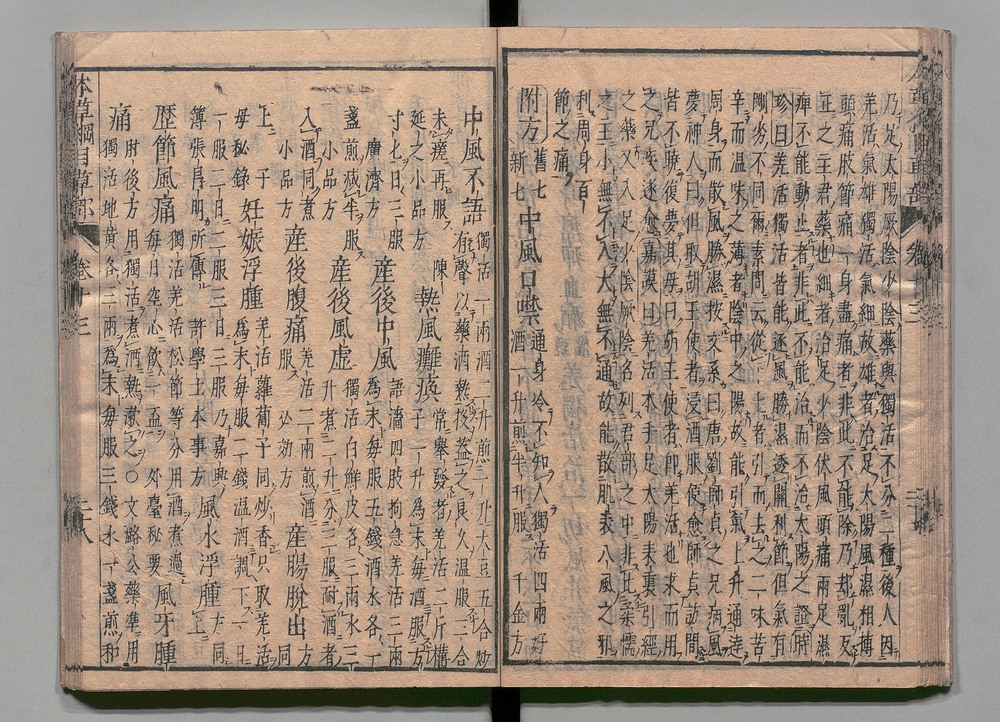 乃足太陽厥陰少陰藥與獨活不分二種後人因
羌活氣雄獨活氣細故雄者治足太陽風濕相搏
頭痛肢節痛一身盡痛者非此不能除乃却亂反
正之主君藥也細者治足少陰伏風頭痛兩足濕
痺不能動止者非此不能治而不治太陽之證時
珍曰羌活獨活皆能逐風勝濕透關利節但氣有
剛劣不同爾素問云從下上者引而去之二味苦
辛而温味之薄者陰中之陽故能引氣上升通達
周身而散風勝濕按文系曰唐劉師貞之兄病風
夢神人曰但取胡王使者浸酒服便愈師貞訪問
皆不曉復夢其母曰胡王使者即羌活也求而用
之兄疾遂愈嘉謨曰羌活本手足太陽表裏引經
之藥又入足少陰厥陰名列君部之中非比柔懦
之主小無不入大無不通故能散肌表八風之邪
利周身百
節之痛
附方 舊七新七 中風口噤 通身冷不知人獨活四兩好
酒一升煎半升服 千金方
中風不語 獨活一兩酒二升煎一升大豆五合炒
有聲以藥酒熱投蓋之良久温服三合
未瘥再服 陳
延之小品方 熱風癱瘓 常舉發者羌活二斤構
子一升爲末毎酒服方
寸七日三服
廣濟方 産後中風 語濇四肢拘急羌活三兩
爲末毎服五錢酒水各一
盞煎減半服
小品方 産後風虚 獨活白鮮皮各三兩水三
升煮二升分三服耐酒者
入酒同煮
小品方 産後腹痛 羌活二兩煎酒
服 必効方 産腸脱出 方
同
上 子
母秘錄 妊娠浮腫 羌活蘿蔔子同炒香只取羌活
爲末毎服二錢温酒調下一日
一服二日二服三日三服乃嘉興
簿張昌明所傳 許學士本事方 風水浮腫 同
上
歴節風痛 獨活羌活松節等分用酒煮過
毎日空心飲一盃 外臺秘要 風牙腫
痛 肘後方用獨活煮酒熱漱之○文潞公藥準用
獨活地黄各三兩爲末毎服三錢水一盞煎和
本草綱目草部 卷十三 二十八